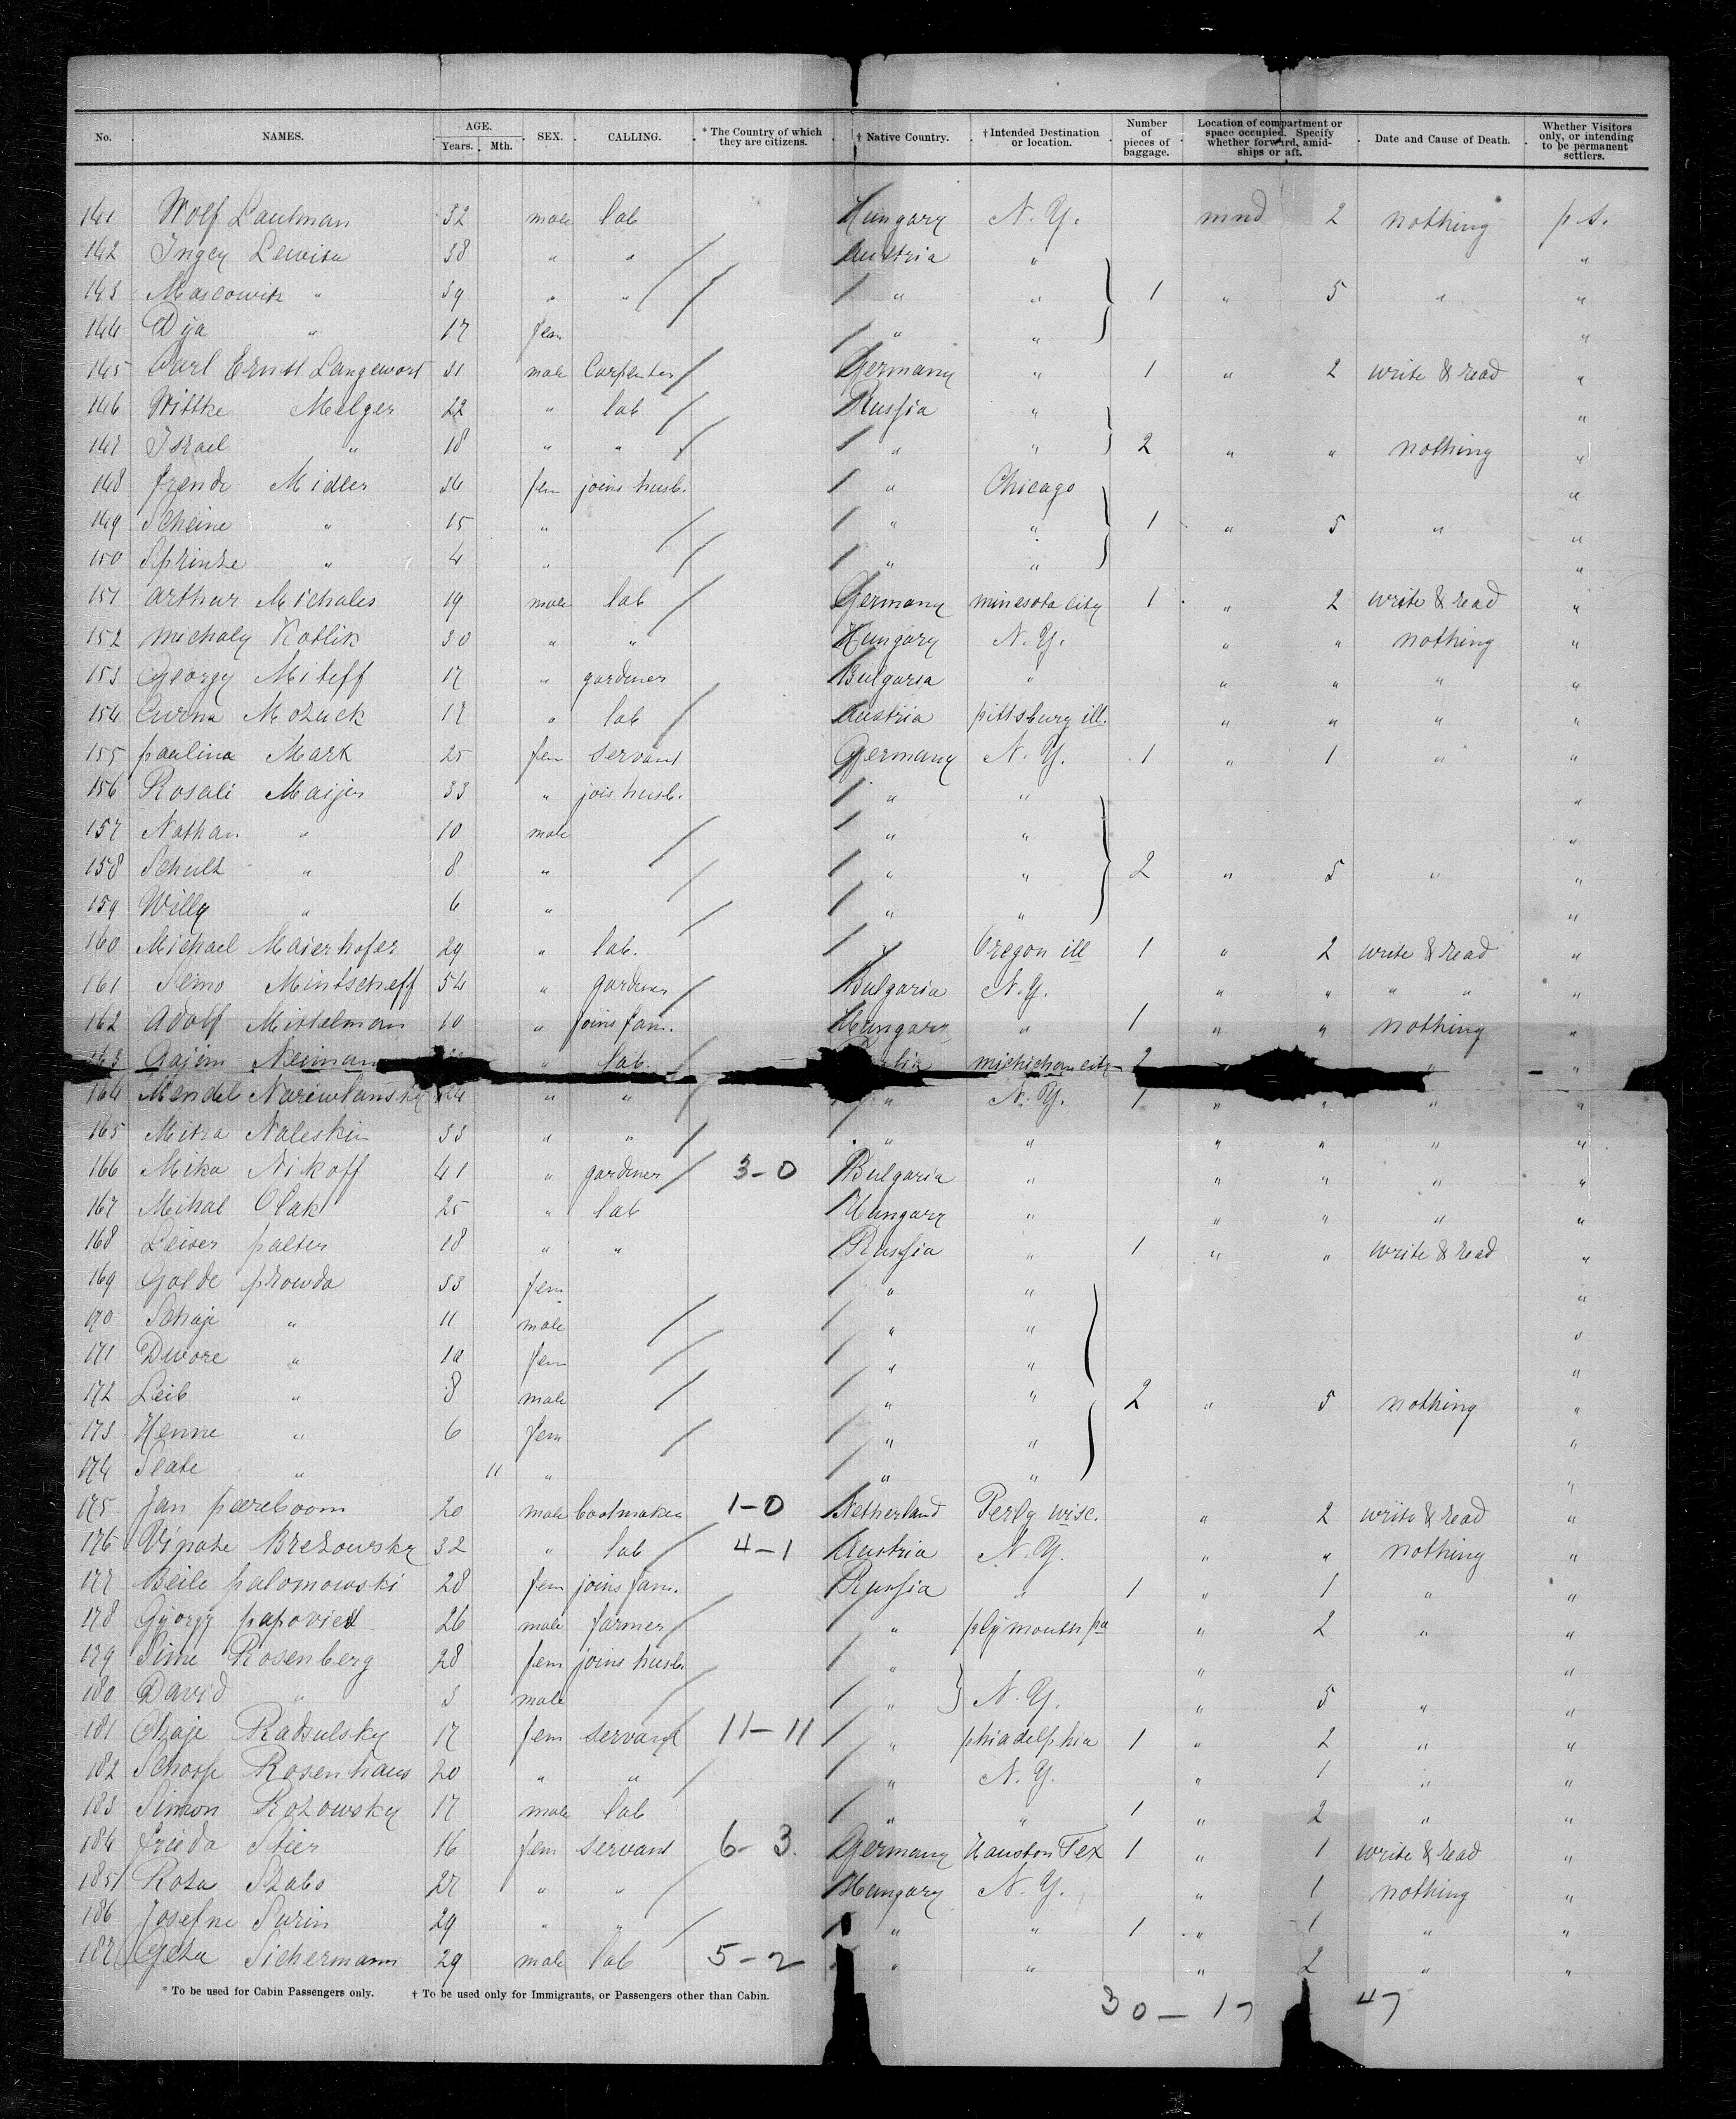 No. NAMES. AGE. Years. Mth. SEX. CALLING. * The Country of which they are citizens. † Native Country. † Intended Destination or location. Number of pieces of baggage. Location of compartment or space occupied. Specify whether forward, amidships or aft. Date and Cause of Death. Whether Visitors only, or intending to be permanent settlers.
141 Wolf Lautman 32 male lab Hungary N.Y. mnd 2 nothing p s.
142 Ingey Lewita 38 " " Austria " "
143 Mascowitz " 39 " " " " 1 " 5 " "
144 Dija " 17 fem " " "
145 Carl Ernst Langewort 31 male Carpenter Germany " 1 " 2 write & read "
146 Wittke Melger 22 " lab Russia " "
147 Israel " 18 " " " " 2 " " nothing "
148 frende Midler 34 fem joins husb. " Chicago "
149 Scheine " 15 " " " 1 " 5 " "
150 Sprinze " 4 " " " "
151 Arthur Michales 19 male lab Germany minesota city 1 " 2 write & read "
152 michaly Kotlik 30 " " Hungary N.Y. " " nothing "
153 Georgy Miteff 17 " gardener Bulgaria " " " " "
154 Mozuck 17 " lab Austria pittsburg ill. " " " "
155 paulina Mark 25 fem servant Germany N.Y. 1 " 1 " "
156 Rosali Maijer 33 " jois husb. " " "
157 Nathan " 10 male " " "
158 Schult " 8 " " " 2 " 5 " "
159 Willy " 6 " " " "
160 Michael Maierhofer 29 " lab. " Oregon ill 1 " 2 write & read "
161 Semo Mintscheff 54 " gardener Bulgaria N.Y. " " " " "
162 Adolf Mittelman 10 " joins fam. Hungary " 1 " " nothing "
163 " lab. michichom city 2 " "
164 Mendel Nariewlansky 24 " " " N.Y. 1 " " " "
165 Mitza Naleskin 33 " " " " " " " "
166 Mika Nikoff 41 " gardener 3-0 Bulgaria " " " " "
167 Mihal Olak 25 " lab Hungary " " " " "
168 Leiser palter 18 " " Russia " 1 " " write & read "
169 Golde prowda 33 fem " " "
170 Schaje " 11 male " " "
171 Dwore " 10 fem " " "
172 Leib " 8 male " " 2 " 5 nothing "
173 Henne " 6 fem " " "
174 Slate " 11 " " " "
175 Jan paereboom 20 male bootmaker 1-0 Netherland Perly wisc. " 2 write & read "
176 Vipate Brezowsky 32 " lab 4-1 Austria N.Y. " " nothing "
177 Beile palomowski 28 fem joins fam. Russia " 1 " 1 " "
178 György papovict 26 male farmer " plymouten pa " 2 " "
179 Sime Rosenberg 28 fem joins husb. " " "
180 David " 3 male " N.Y. " 5 " "
181 Chaje Radzulsky 17 fem servant 11-11 " phiadelphia 1 " 2 " "
182 Rosenhaus 20 " " " N.Y. " 1 " "
183 Simon Rozowsky 17 male lab " " 1 " 2 " "
184 frieda Stier 16 fem servant 6-3. Germany Hauston Tex 1 " 1 write & read "
185 Roza Szabo 27 " " Hungary N.Y. " 1 nothing "
186 Josefne Surin 29 " " " " 1 " 1 " "
187 Geza Sichermann 29 male lab 5-2 " " " 2 " "
* To be used for Cabin Passengers only. † To be used only for Immigrants, or Passengers other than Cabin.
30 - 17 47